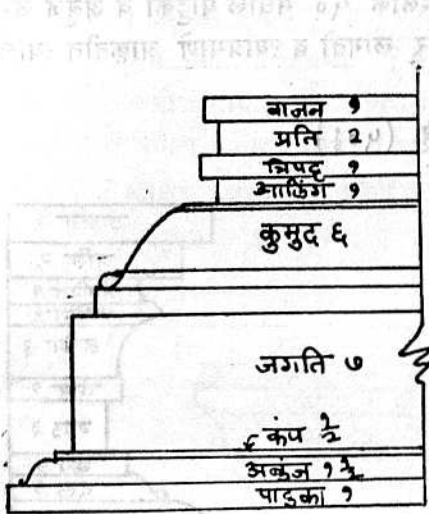 वाजन १
प्रति २
त्रिपट्ट १
आलिंग १
कुमुद ६
जगति ७
कंप १/२
अब्ज १ १/२
पादुका १